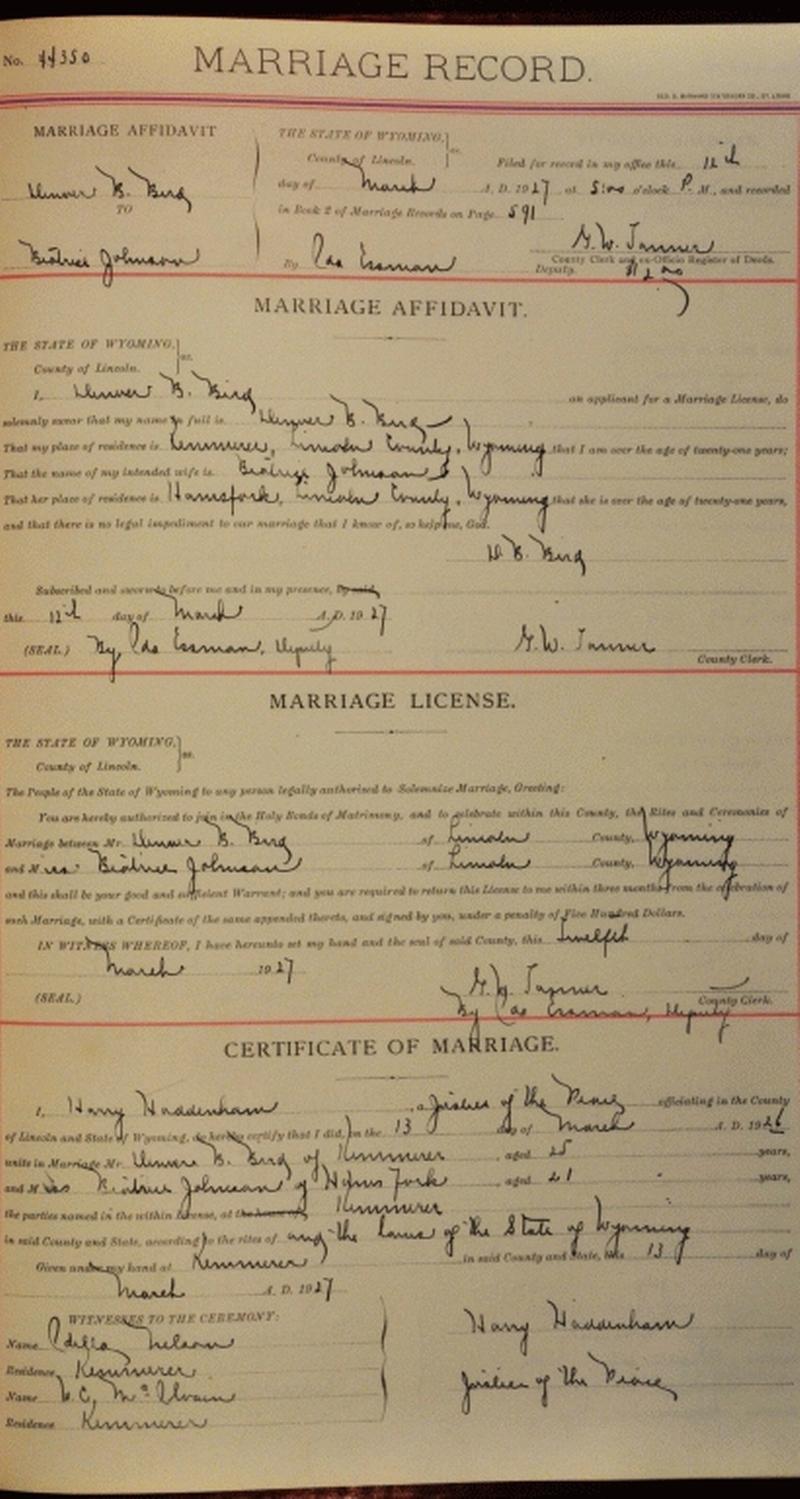 No. 44350
MARRIAGE RECORD.
MARRIAGE AFFIDAVIT
Denver B. Bird
TO
Beatrice Johnson
THE STATE OF WYOMING, ss.
County of Lincoln.
Filed for record in my office this 12th
day of March A. D. 1927 at 5:00 o'clock P. M., and recorded
in Book 2 of Marriage Records on Page 591
G. W. Tanner
County Clerk and ex-Officio Register of Deeds.
By Essman Deputy.
MARRIAGE AFFIDAVIT.
THE STATE OF WYOMING, ss.
County of Lincoln.
I, Denver B. Bird an applicant for a Marriage License, do
solemnly swear that my name in full is Denver B. Bird
That my place of residence is Kemmerer, Lincoln County, Wyoming that I am over the age of twenty-one years;
That the name of my intended wife is Beatrice Johnson
That her place of residence is Hamsfork, Lincoln County, Wyoming that she is over the age of twenty-one years,
and that there is no legal impediment to our marriage that I know of, so help me, God.
D. B. Bird
Subscribed and sworn to before me and in my presence, by said
this 12th day of March A. D. 1927
(SEAL.) By, Essman, Deputy G. W. Tanner
County Clerk.
MARRIAGE LICENSE.
THE STATE OF WYOMING, ss.
County of Lincoln.
The People of the State of Wyoming to any person legally authorized to Solemnize Marriage, Greeting:
You are hereby authorized to join in the Holy Bonds of Matrimony, and to celebrate within this County, the Rites and Ceremonies of
Marriage between Mr. Denver B. Bird of Lincoln County, Wyoming
and Miss Beatrice Johnson of Lincoln County, Wyoming
and this shall be your good and sufficient Warrant; and you are required to return this License to me within three months from the celebration of
such Marriage, with a Certificate of the same appended thereto, and signed by you, under a penalty of Five Hundred Dollars.
IN WITNESS WHEREOF, I have hereunto set my hand and the seal of said County, this Twelfth day of
March 1927
G. W. Tanner
(SEAL) County Clerk.
By Essman, Deputy
CERTIFICATE OF MARRIAGE.
I, Harry Haddenham, a Justice of the Peace officiating in the County
of Lincoln and State of Wyoming, do hereby certify that I did, on the 13 day of March A. D. 1926
unite in Marriage Mr. Denver B. Bird of Kemmerer, aged 25 years,
and Miss Beatrice Johnson of Hams Fork, aged 21 years,
the parties named in the within License, at the Kemmerer
in said County and State, according to the rites of and the laws of the State of Wyoming
Given under my hand at Kemmerer in said County and State, this 13 day of
March A. D. 1927
WITNESSES TO THE CEREMONY:
Name Nelson
Residence Kemmerer
Name
Residence Kemmerer
Harry Haddenham
Justice of the Peace